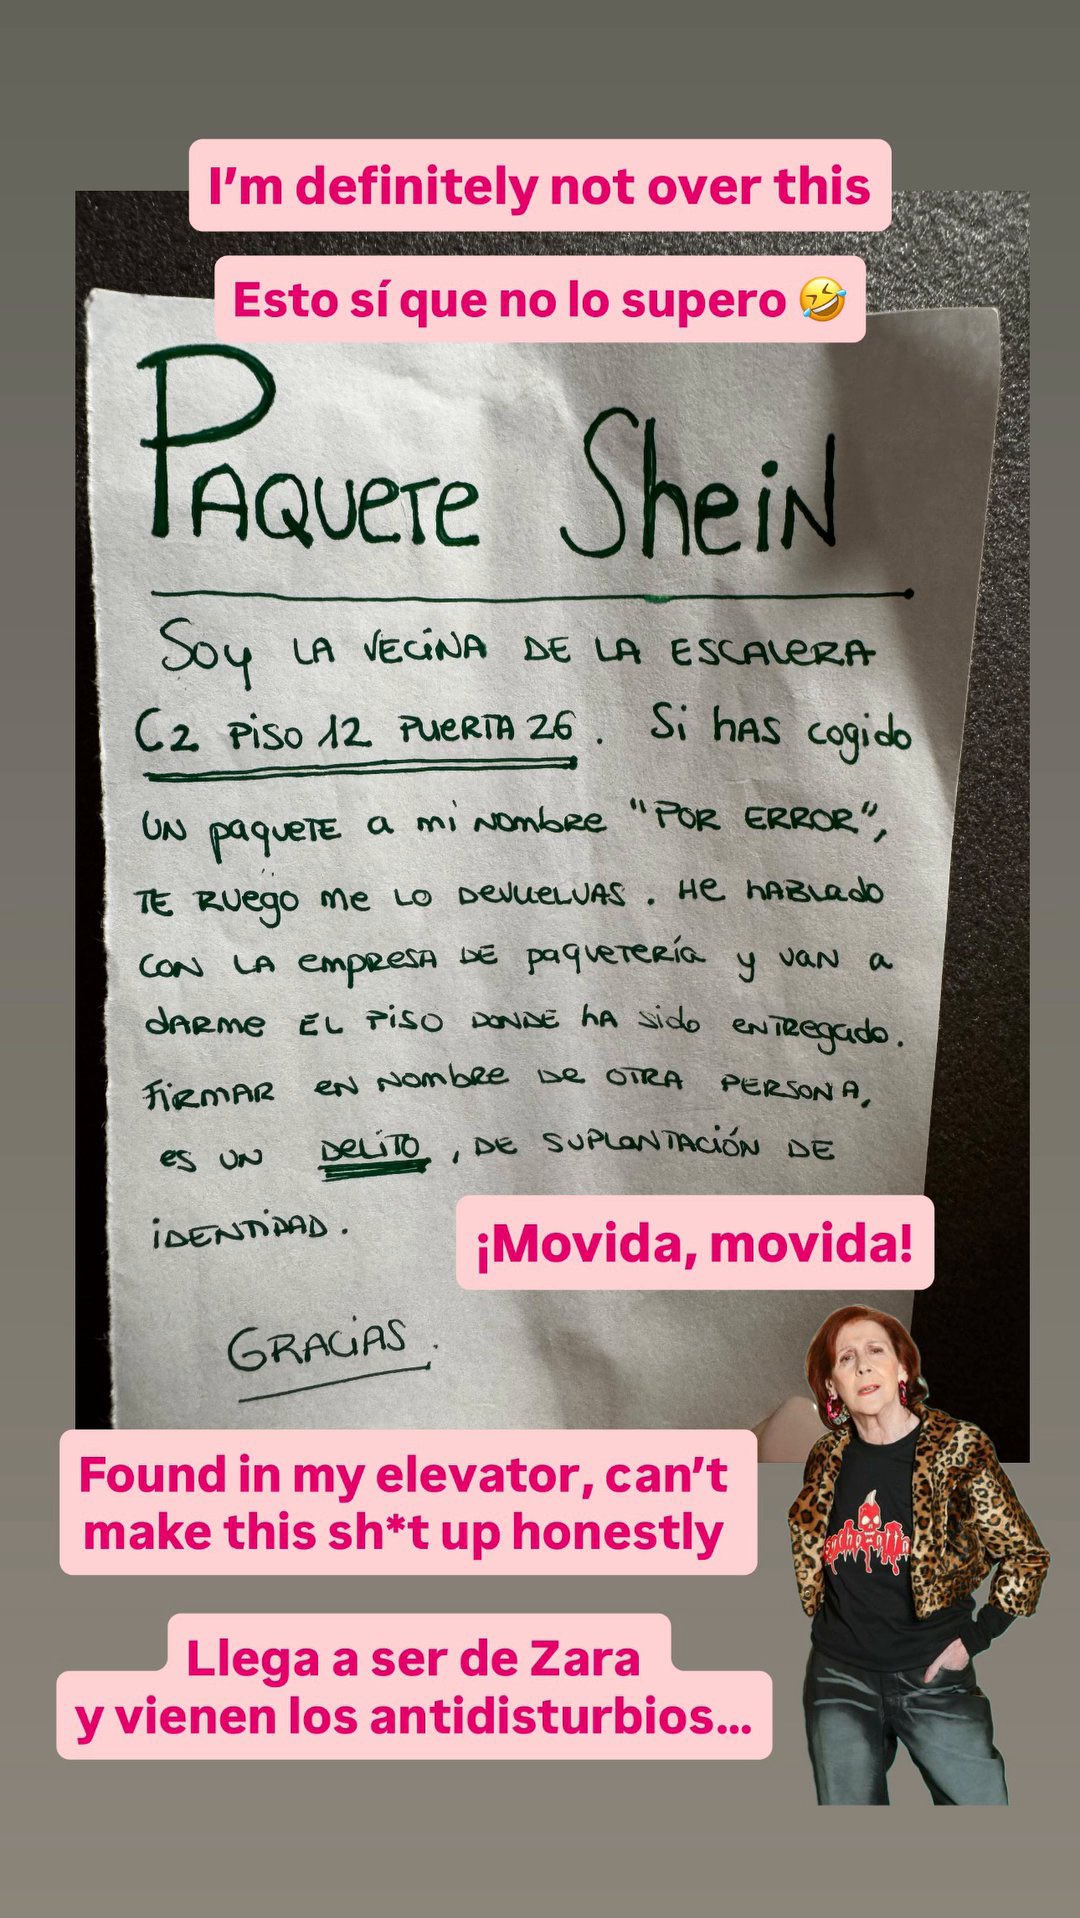 I'm definitely not over this
Esto sí que no lo supero 🤣
PAQUETE SheiN
Soy LA VECINA DE LA ESCALERA
C2 PISO 12 PUERTA 26. Si has cogido
UN paquete a mi nombre "POR ERROR",
TE RUEGO me LO DEVUELVAS. He hablado
CON LA empresa DE paquetería y van a
darme EL PISO DONDE ha sido entregado.
FIRMAR EN NOMBRE DE OTRA PERSONA,
es UN DELITO, DE SUPLANTACIÓN DE
IDENTIDAD.
¡Movida, movida!
GRACIAS.
Found in my elevator, can't
make this sh*t up honestly
Llega a ser de Zara
y vienen los antidisturbios...